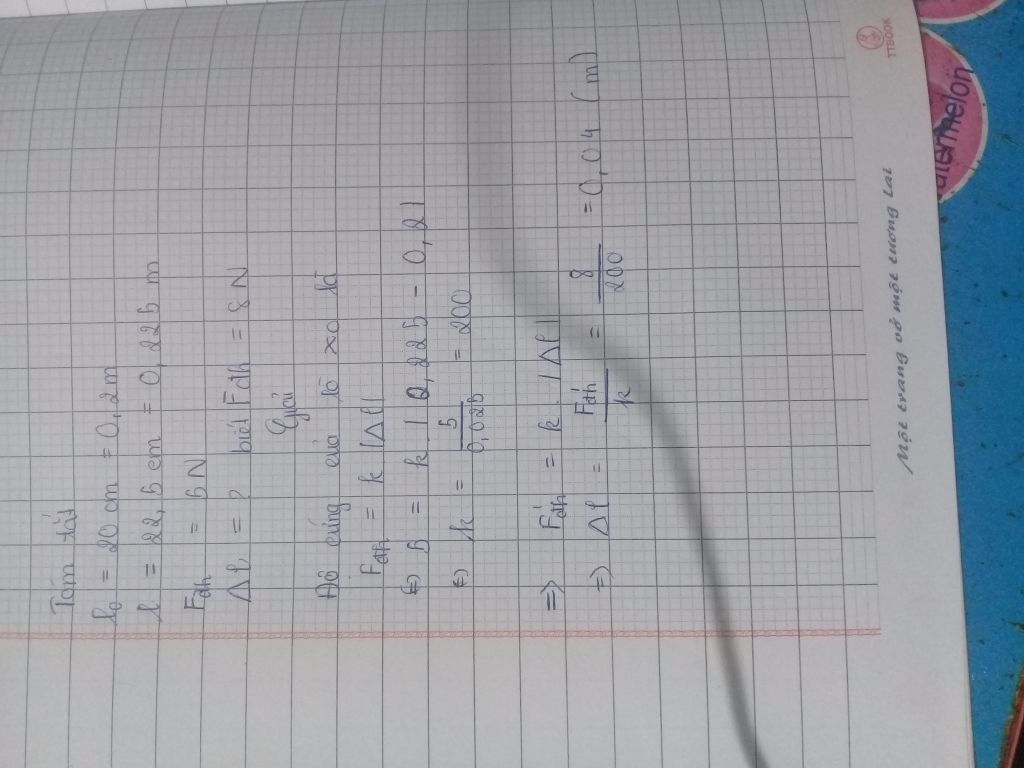 Tóm tắt
l₀ = 20 cm = 0,2 m
l = 22,5 cm = 0,225 m
Fđh = 5 N
Δl = ? biết Fđh = 8 N
Giải
Độ cứng của lò xo là
Fđh = k |Δl|
(=) 5 = k . | 0,225 - 0,2 |
(=) k = 5/0,025 = 200
=> Fđh = k . |Δl|
=) Δl = Fđh/k = 8/200 = 0,04 (m)
Một trang vở một tương lai
TTBOOK
atermelon